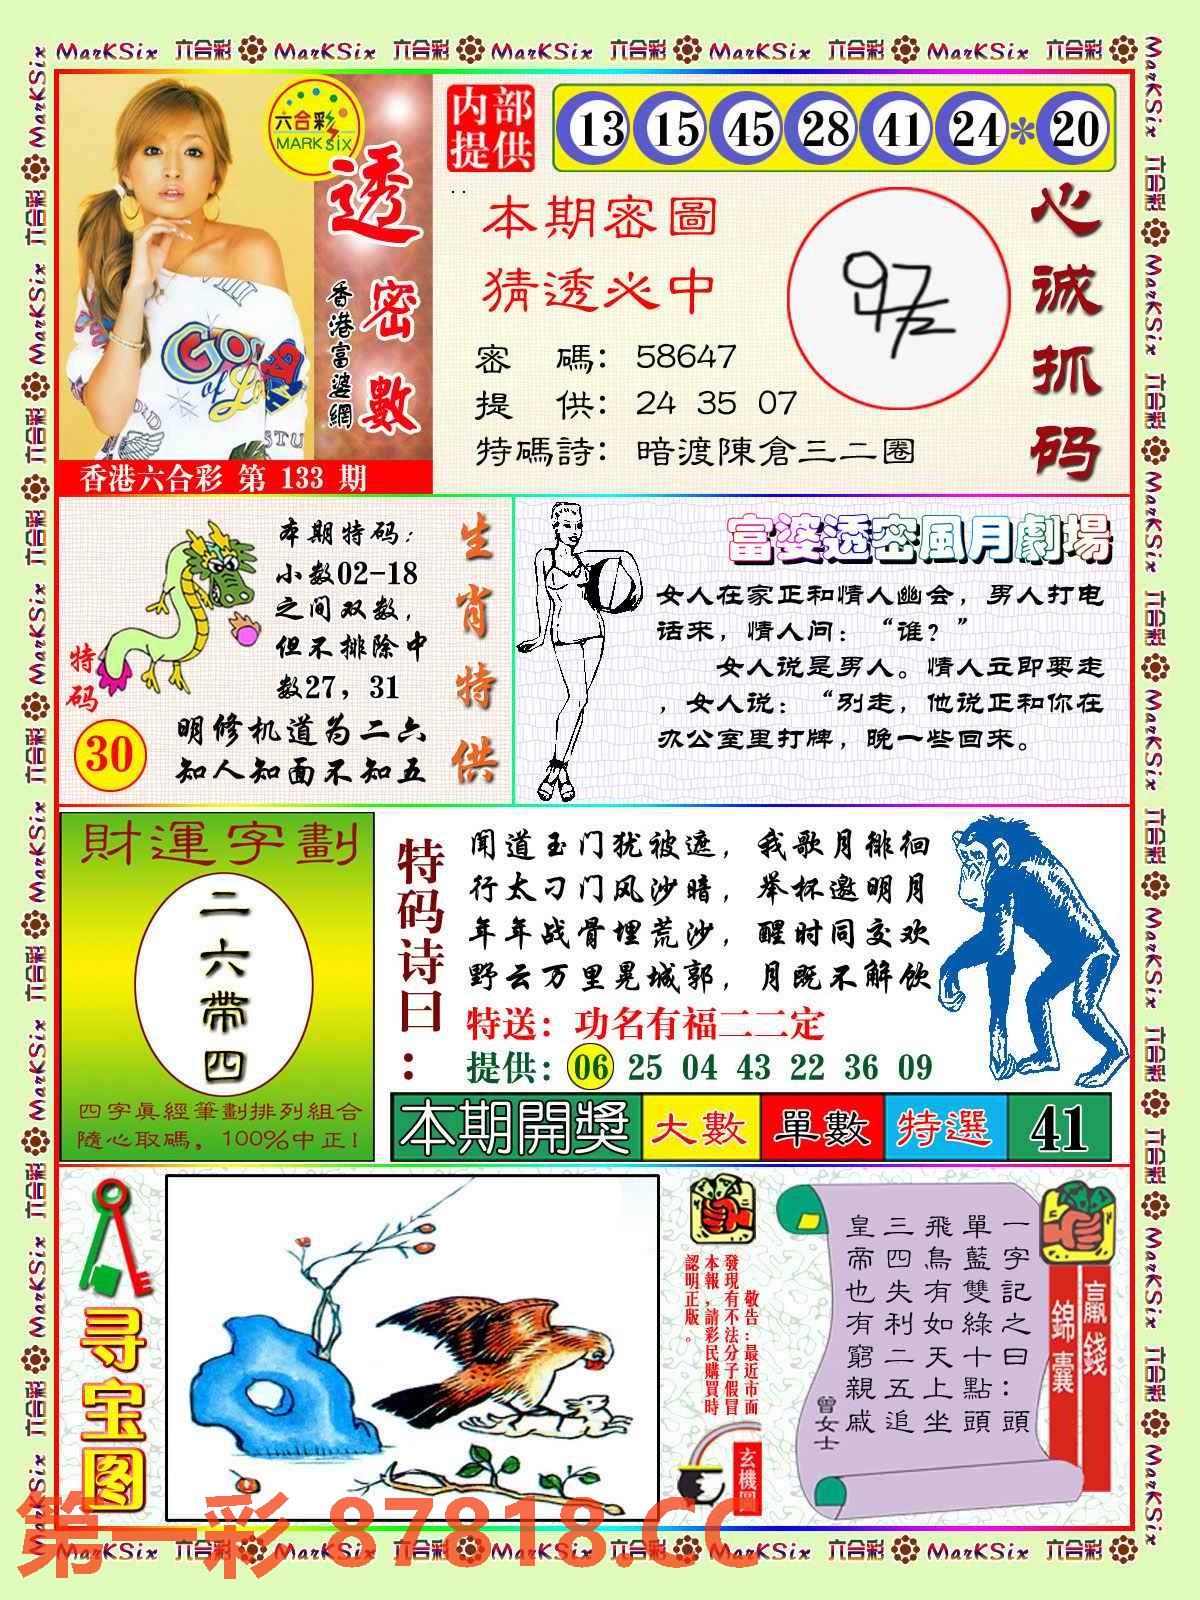 MarKSix 六合彩 MarKSix 六合彩 MarKSix 六合彩 MarKSix 六合彩 MarKSix 六合彩
六合彩
MARK SIX
透密數
香港富婆網
香港六合彩 第 133 期
内部提供
13 15 45 28 41 24 * 20
本期密圖
猜透必中
密 碼: 58647
提 供: 24 35 07
特碼詩: 暗渡陳倉三二圈
心诚抓码
本期特码:
小数02-18
之间双数,
但不排除中
数27, 31
明修机道为二六
知人知面不知五
特码
30
生肖特供
富婆透密風月劇場
女人在家正和情人幽会，男人打电
话来，情人问：“谁？”
女人说是男人。情人立即要走
，女人说：“别走，他说正和你在
办公室里打牌，晚一些回来。
財運字劃
二六帶四
四字眞經筆劃排列組合
隨心取碼, 100%中正!
特码诗曰:
闻道玉门犹被遮，我歌月徘徊
行太刁门风沙暗，举杯邀明月
年年战骨埋荒沙，醒时同交欢
野云万里晃城郭，月既不解饮
特送：功名有福二二定
提供：06 25 04 43 22 36 09
本期開獎 大數 單數 特選 41
寻宝图
敬告：最近市面
發現有不法分子假冒
本報，請彩民購買時
認明正版。
玄機圖
一字記之曰：頭
單藍雙綠十點頭
飛鳥有如天上坐
三四失利二五追
皇帝也有窮親戚
曾女士
贏錢
錦囊
第一彩 87818.CC
MarKSix 六合彩 MarKSix 六合彩 MarKSix 六合彩 MarKSix 六合彩 MarKSix 六合彩